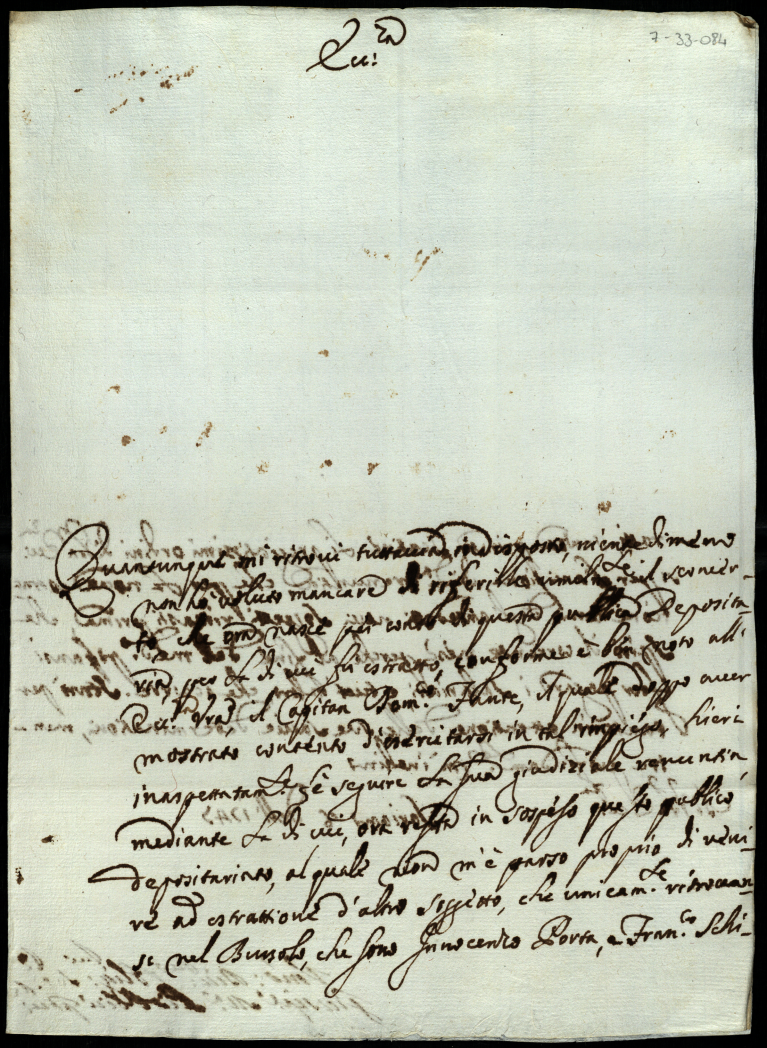 Ecc.za
7-33-084
Quantunque mi ritrovi tuttavia indisposto, nientedimeno
non hò voluto mancare di riferille umilm.te il sconcer-
to, che ora nasce per conto di questa publica Deposita-
ria, per la di cui fu estratto, conforme è ben noto all'
Ecc.za Vra, il Capitan Dom.co Fante, il quale doppo aver
mostrato contento d'esercitarsi in tal impiego, hieri
inaspettatam.te fè seguire la sua giudiziale renuntia,
mediante la di cui, ora resta in sospeso questo publico
depositariato, al quale non m'è parso proprio di veni-
re ad estrattione d'altro soggetto, che unicam.te ritrovan-
si nel Bussolo, che sono Innocentio Porta, e Fran.co Schi-